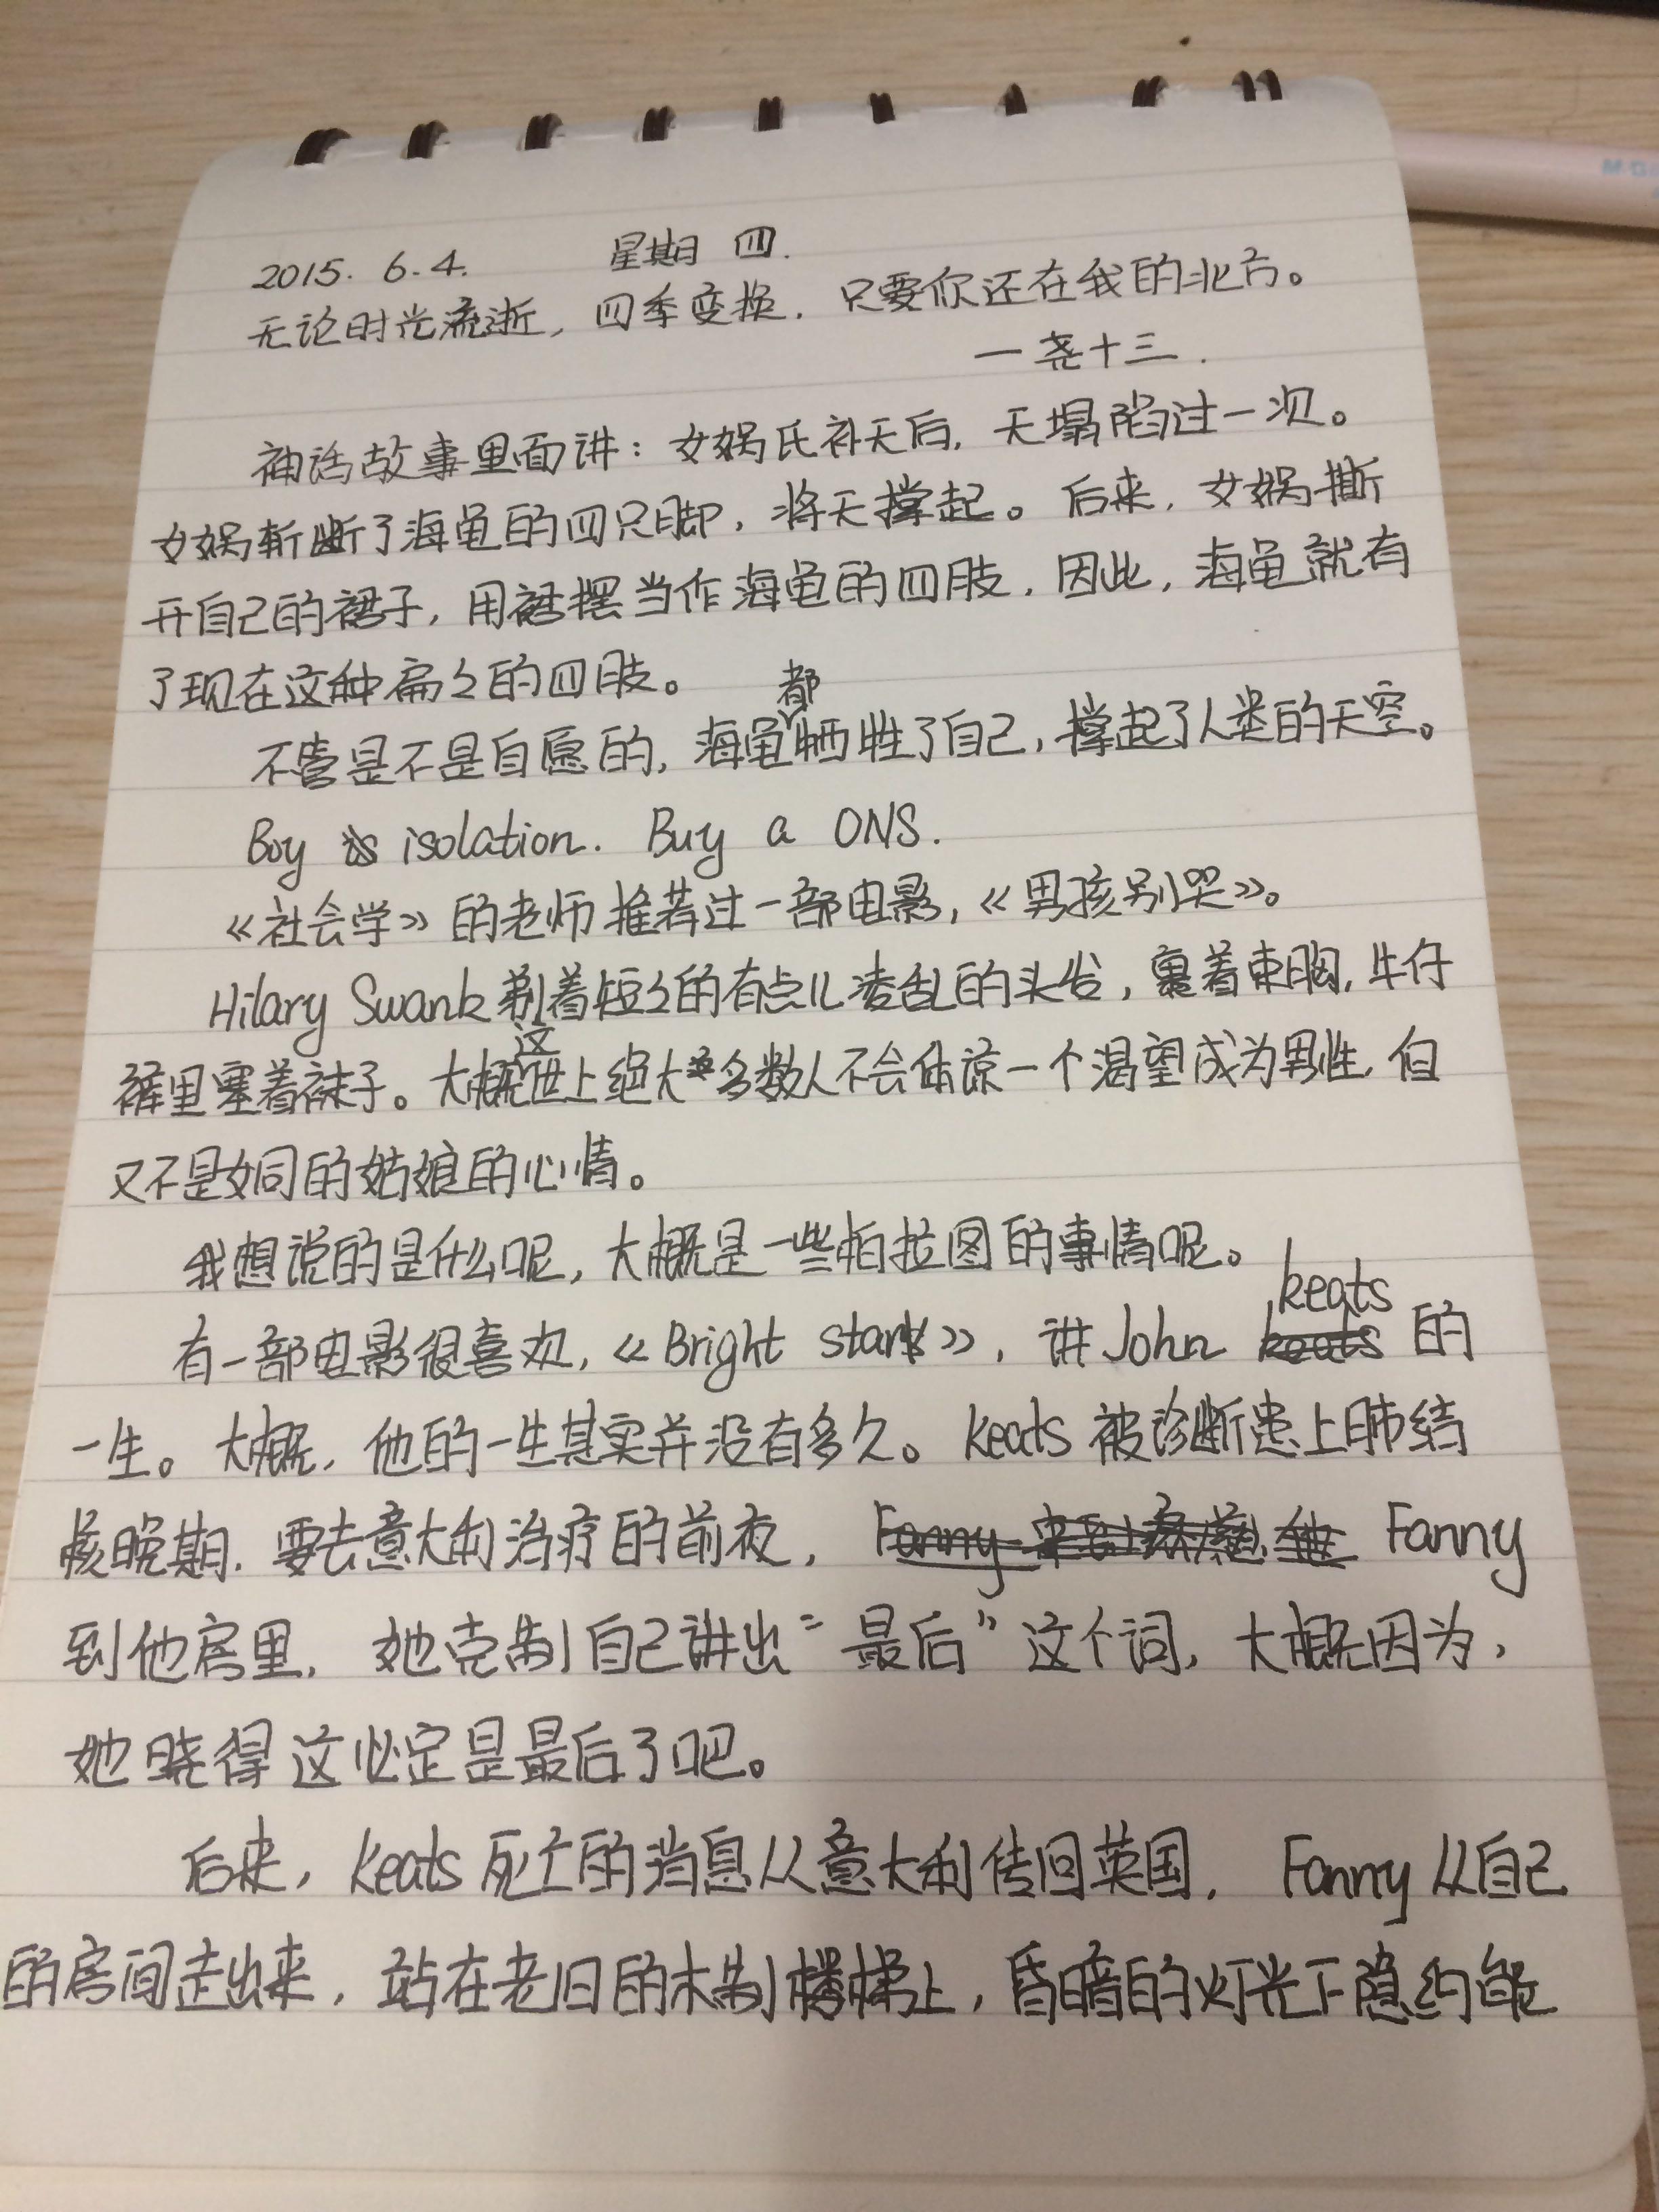 2015. 6.4. 星期四.
无论时光流逝, 四季变换, 只要你还在我的北方。
— 尧十三.
神话故事里面讲: 女娲氏补天后, 天塌陷过一次。
女娲斩断了海龟的四只脚, 将天撑起。后来, 女娲撕
开自己的裙子, 用裙摆当作海龟的四肢, 因此, 海龟就有
了现在这种扁々的四肢。
不管是不是自愿的, 海龟都牺牲了自己, 撑起了人类的天空。
Boy is isolation. Buy a ONS.
《社会学》的老师推荐过一部电影,《男孩别哭》。
Hilary Swank 剃着短々的有点儿凌乱的头发, 裹着束胸, 牛仔
裤里塞着袜子。大概这世上绝大多数人不会体谅一个渴望成为男性, 但
又不是女同的姑娘的心情。
我想说的是什么呢, 大概是一些柏拉图的事情呢。
有一部电影很喜欢,《Bright star》, 讲 John keats 的
一生。大概, 他的一生其实并没有多久。keats 被诊断患上肺结
核晚期. 要去意大利治疗的前夜, Fanny
到他房里, 她克制自己讲出“最后”这个词, 大概因为,
她晓得这必定是最后了吧。
后来, keats 死亡的消息从意大利传回英国, Fanny 从自己
的房间走出来, 站在老旧的木制楼梯上, 昏暗的灯光下隐约能
M·G